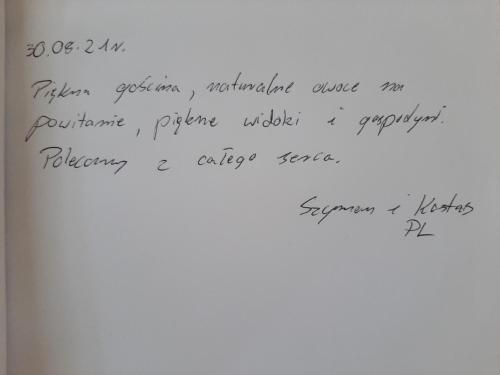 30.08.21r.
Piękna gościna, naturalne owoce na
powitanie, piękne widoki i gospodyni.
Polecamy z całego serca.
Szymon i Kostas
PL